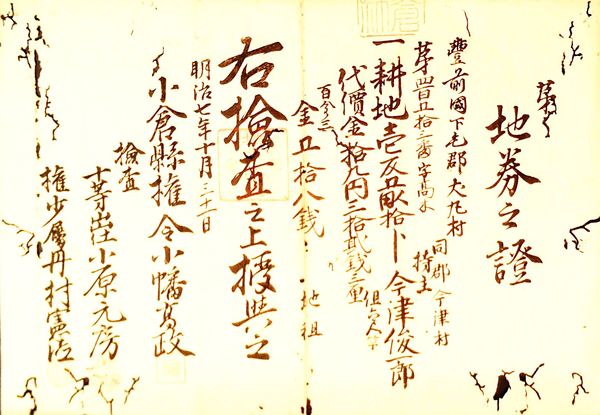 地券之證
豊前國下毛郡犬丸村
第四百五拾三番字高水
同郡今津村
一耕地壱反五畝拾卜
持主
今津俊一郎
代價金拾九円三拾弐銭三厘
百分ノ三
金五拾八銭
地租
右檢査之上授與之
明治七年十月三十一日
小倉縣權令小幡高政
檢査
十等出仕小原元房
權少属丹村憲治